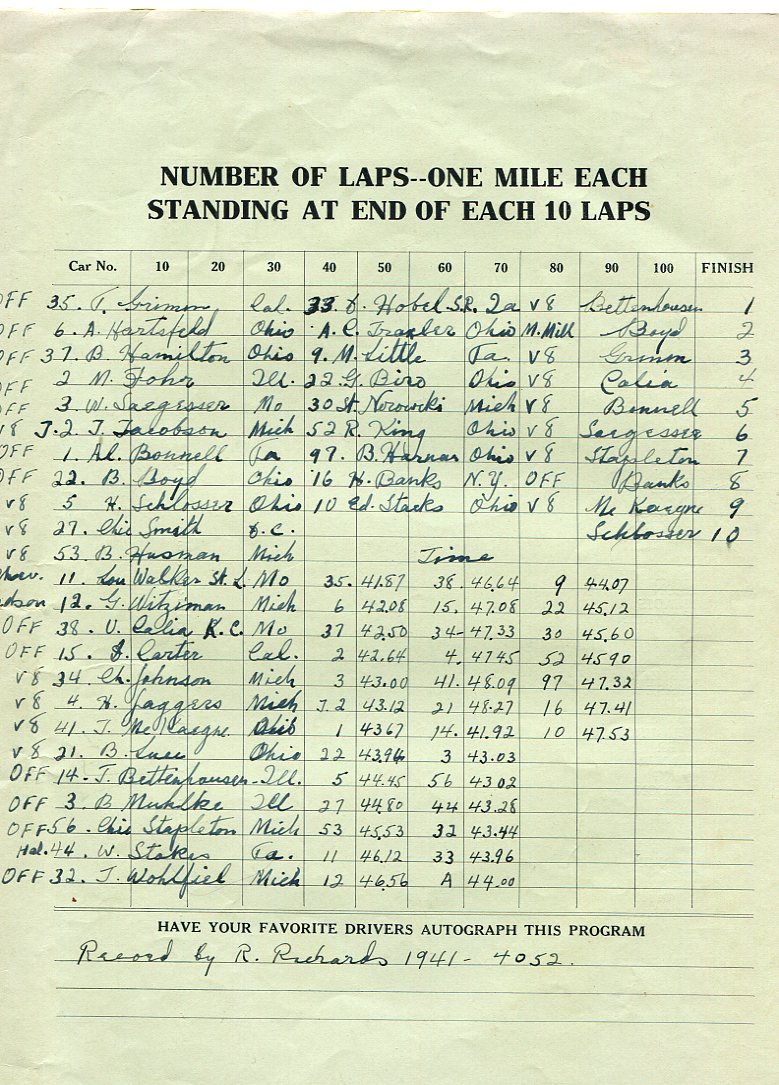 NUMBER OF LAPS--ONE MILE EACH
STANDING AT END OF EACH 10 LAPS
Car No. 10 20 30 40 50 60 70 80 90 100 FINISH
OFF 35. T. Grimm Cal. 33. D. Hobel S.R. Ia V8 Bettenhausen 1
OFF 6. A. Hartsfeld Ohio A. C. Traxler Ohio M. Mill Boyd 2
OFF 37. B. Hamilton Ohio 9. M. Little Pa. V8 Grimm 3
OFF 2 M. Fohr Ill. 22 G. Biro Ohio V8 Calia 4
OFF 3. W. Saegesser Mo 30 St. Norowcki Mich V8 Bonnell 5
V8 J.2 J. Jacobson Mich 52 R. King Ohio V8 Saegesser 6
OFF 1. Al. Bonnell Pa 97. B. Harnar Ohio V8 Stapleton 7
OFF 22. B. Boyd Ohio 16 H. Banks N.Y. OFF Banks 8
V8 5 H. Schlosser Ohio 10 Ed. Stacks Ohio V8 Mc Kaegne 9
V8 27. Chic Smith D.C. Schlosser 10
V8 53. B. Husman Mich Time
11. Lou Walker St. L. Mo 35. 41.87 38. 46.64 9 44.07
12. G. Witziman Mich 6 42.08 15. 47.08 22 45.12
OFF 38. V. Calia K.C. Mo 37 42.50 34- 47.33 30 45.60
OFF 15. D. Carter Cal. 2 42.64 4. 47.45 52 45.90
V8 34 Ch. Johnson Mich 3 43.00 41. 48.09 97 47.32
V8 4. H. Jaggers Mich J.2 43.12 21 48.27 16 47.41
V8 41. J. Mc Kaegne Ohio 1 43.67 14. 41.92 10 47.53
V8 21. B. Luce Ohio 22 43.94 3 43.03
OFF 14. T. Bettenhausen - Ill. 5 44.45 56 43.02
OFF 3. B Muhlke Ill 27 44.80 44 43.28
OFF 56. Chic Stapleton Mich 53 45.53 32 43.44
Hal. 44. W. Stokes Pa. 11 46.12 33 43.96
OFF 32. J. Wohlfiel Mich 12 46.56 A 44.00
HAVE YOUR FAVORITE DRIVERS AUTOGRAPH THIS PROGRAM
Record by R. Richards 1941 - 4052.